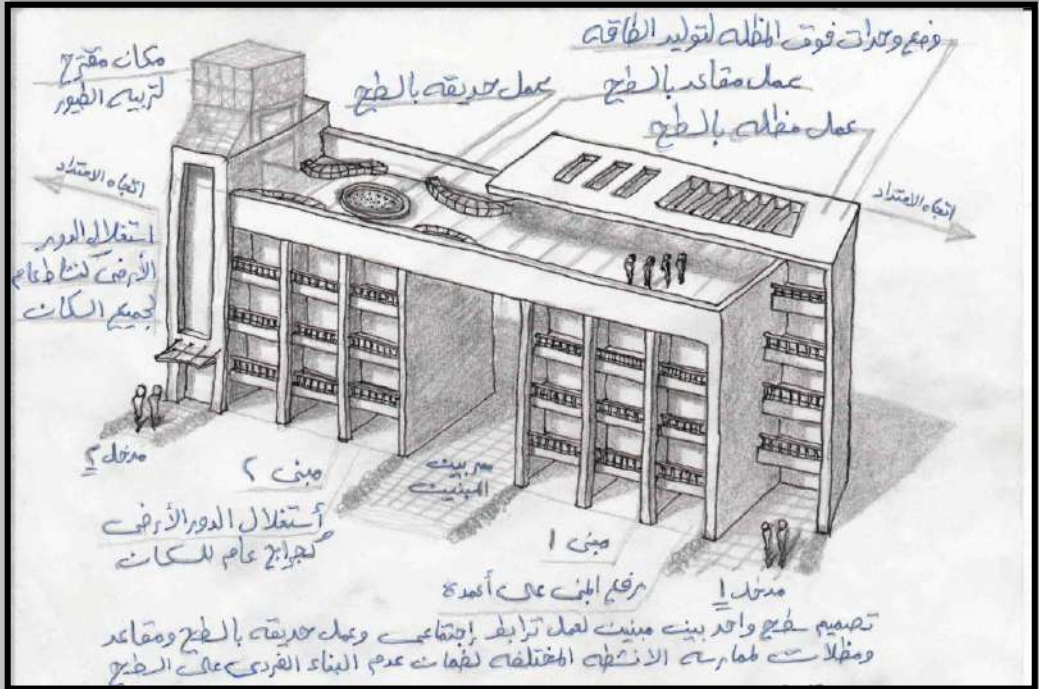 وضع وحدات فوق المظله لتوليد الطاقه
عمل مقاعد بالسطح
عمل مظله بالسطح
عمل حديقه بالسطح
مكان مقترح
لتربيه الطيور
اتجاه الامتداد
اتجاه الامتداد
استغلال الدور
الأرضى كنشاط عام
لجميع السكان
مدخل ٢
مبنى ٢
أستغلال الدور الأرضى
كجراج عام للسكان
ممر بين
المبنين
مبنى ١
برفع المبنى على أعمدة
مدخل ١
تصميم سطح واحد بين مبنين لعمل ترابط إجتماعى وعمل حديقه بالسطح ومقاعد
ومظلات لممارسه الانشطه المختلفه لضمان عدم البناء الفردى على السطح